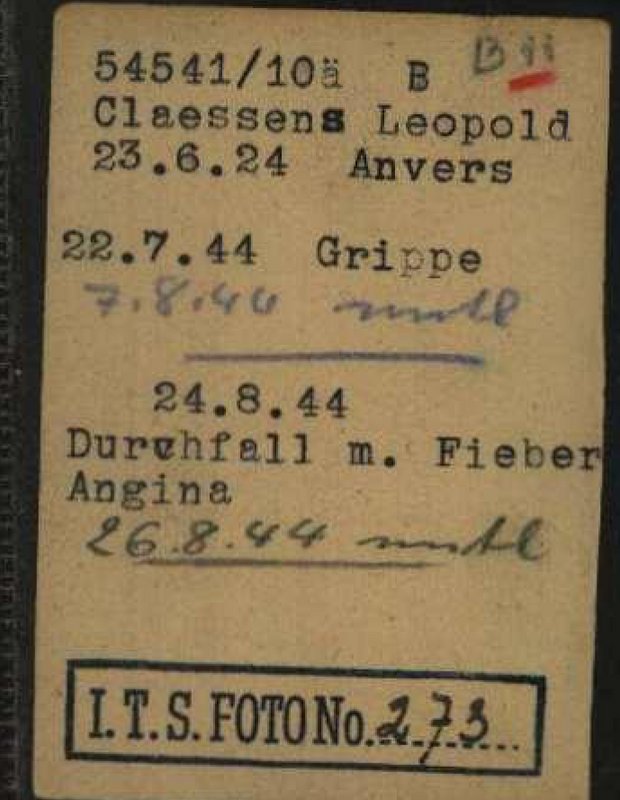 54541/10ä B B 11
Claessens Leopold
23.6.24 Anvers
22.7.44 Grippe
7.8.44
24.8.44
Durchfall m. Fieber
Angina
26.8.44
I.T.S. FOTO No. 273